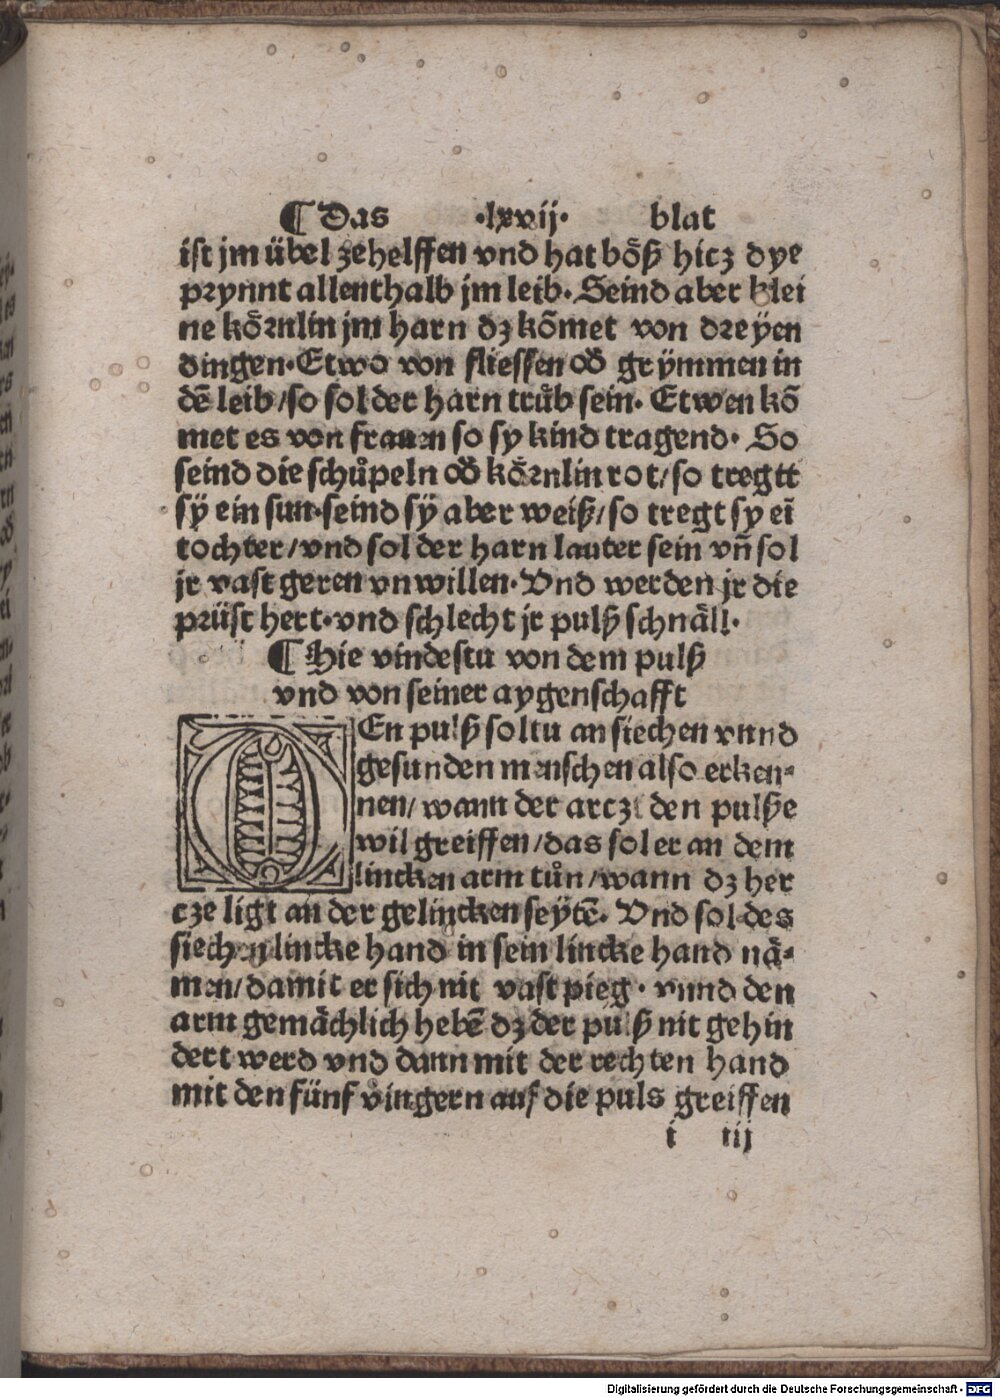 ¶ Das ·lxvij· blat
ist jm übel zehelffen vnd hat bo̎ß hicz dye
prynnt allenthalb jm leib· Seind aber klei
ne ko̎rnlin jm harn dz kōmet von dreÿen
dingen· Etwo von fliessen od̄ grÿmmen in
dē leib/ so sol der harn trůb sein· Etwen kō
met es von frauen so sy kind tragend· So
seind die schůpeln od̄ ko̎rnlin rot/ so tregtt
sÿ ein sun· seind sÿ aber weiß/ so tregt sy ei̅
tochter/ vnd sol der harn lauter sein vn̄ sol
jr vast geren vnwillen· Vnd werden jr die
prüst hert· vnd schlecht jr pulß schnäll·
¶ Hie vindestu von dem pulß
vnd von seiner aygenschafft
DEn pulß soltu an siechen vnnd
gesunden menschen also erken-
nen/ wann der arczt den pulße
wil greiffen/ das sol er an dem
lincken arm tůn/ wann dz her
cze ligt an der gelincken seÿtē· Vnd sol des
siechen lincke hand in sein lincke hand nä-
men/ damit er sich nit vast pieg· vnnd den
arm gemächlich hebē dz der pulß nit gehin
dert werd vnd dann mit der rechten hand
mit den fünf vingern auf die puls greiffen
i iij
Digitalisierung gefördert durch die Deutsche Forschungsgemeinschaft - DFG